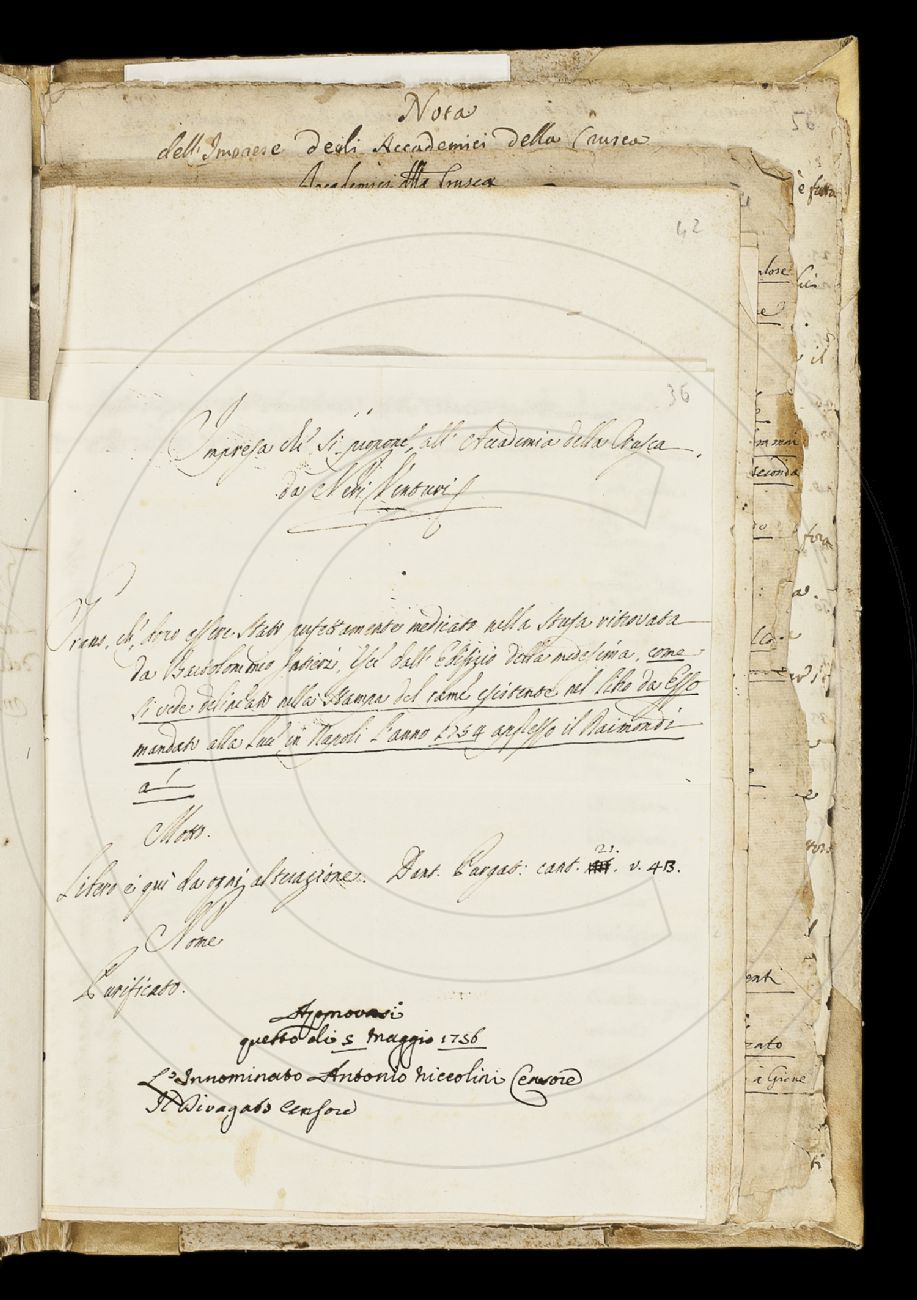 Nota
dell'Imprese degli Accademici della Crusca
Accademici della Crusca
56
è fatta
42
36
Impresa che si propone all' Accademia della Crusca
da Neri Venturi
Grano, che dopo essere stato perfettamente medicato nella stufa ritrovata
da Bartolommeo Intieri, esce dall' Edifizio della medesima, come
si vede delineato nella stampa del rame esistente nel libro da Esso
mandato alla luce in Napoli l'anno 1754 appresso il Raimondi
a
Motto.
Libero è qui da ogni alterazione. Dant. Purgat: cant. 21. v. 43.
Nome
Purificato.
Approvasi
questo dì 5 Maggio 1756
L'Innominato Antonio Niccolini Censore
Il Divagato Censore
il
seconda
fora
enti